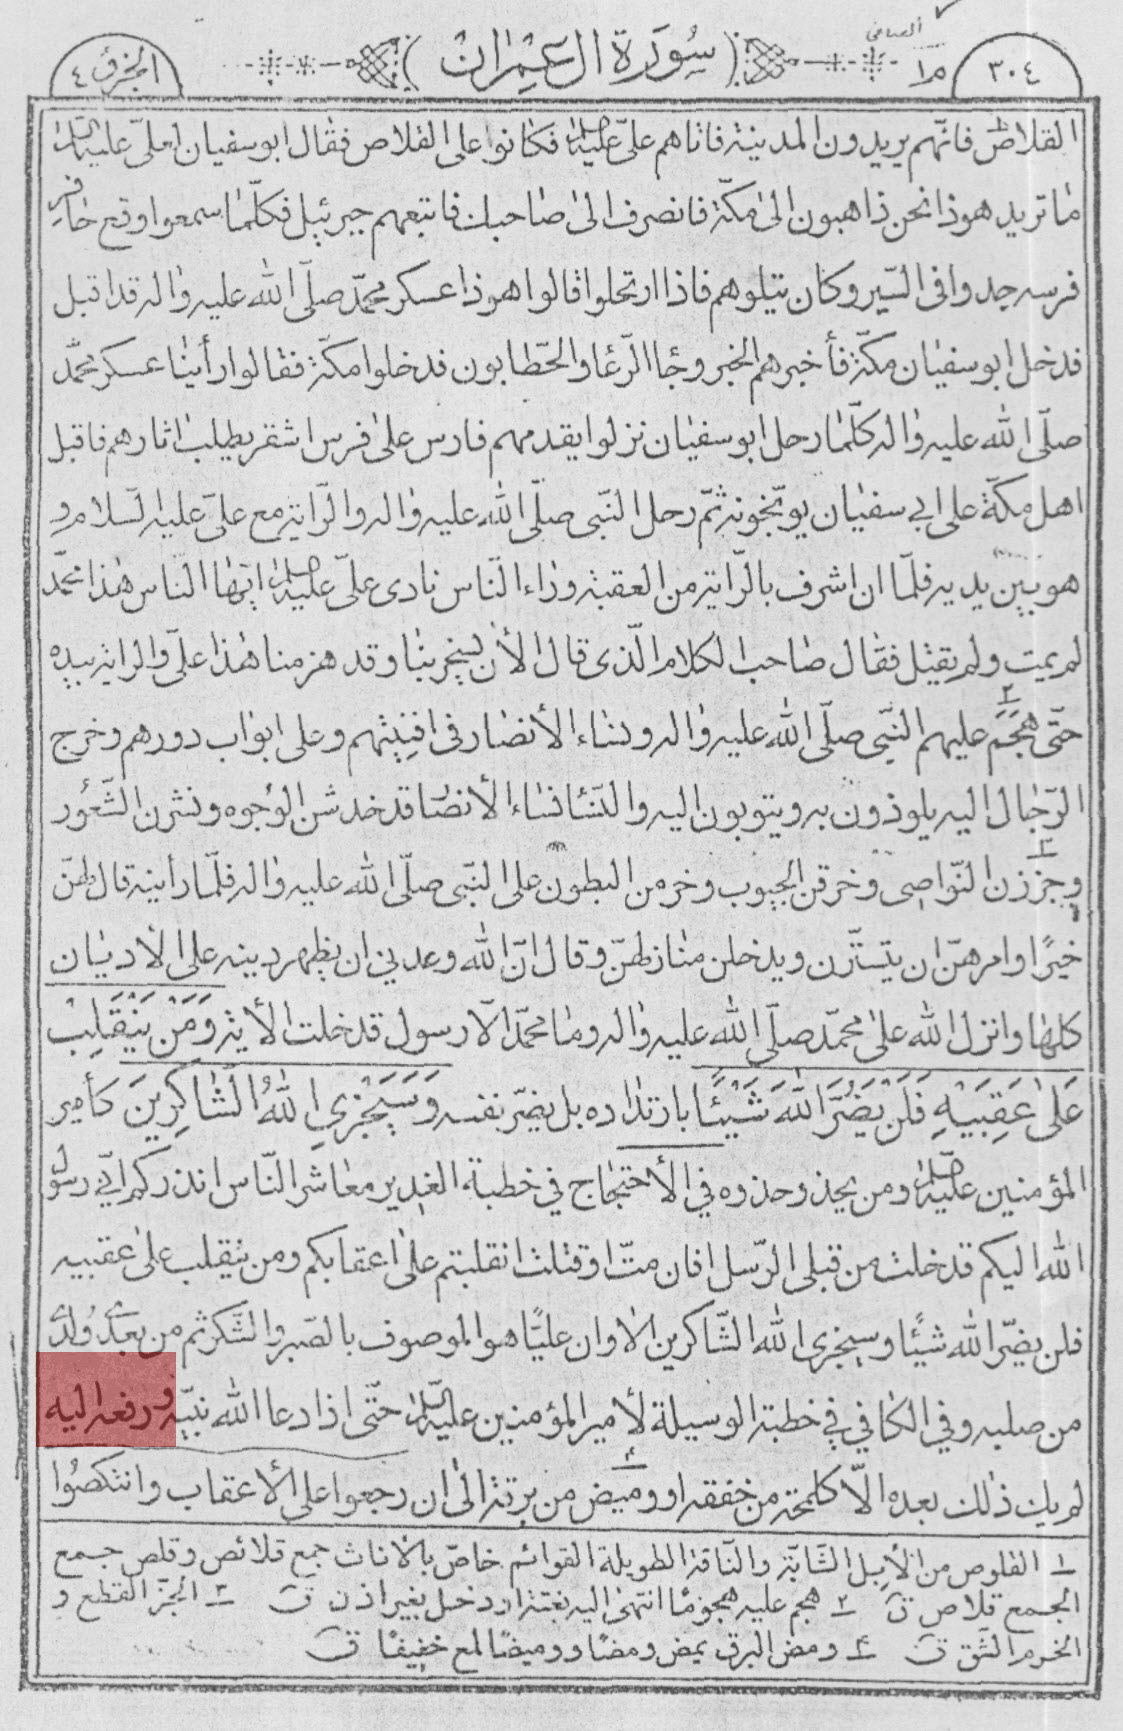 الصافى
٣٠٤
م١
(سُورَة ال عِمْرٰان)
الجزؤ ٤
القلاص فانّهم يريدون المدينة فاتاهم علىّ عليه السّلام فكانوا على القلاص فقال ابو سفيان لعلىّ عليه السّلام
مٰا تريد هوذا نحن ذاهبون الىٰ مكّة فانصرف الىٰ صٰاحبك فاتبعهم جبرئيل فكلّمٰا سمعوا وقع حٰافر
فرسه جدوا فى السّير وكٰان يتلوهم فاذا ارتحلوا قٰالوا هوذا عسكر محمّد صلّى الله عليه وٰاله قد اقبل
فدخل ابو سفيٰان مكّة فأخبرهم الخبر وجٰا الرّعٰا والحّطابون فدخلوا مكّة فقٰالوا رأينٰا عسكر محمّد
صلّى الله عليه وٰاله كلّمٰا رحل ابو سفيٰان نزلوا يقدمهم فارس علىٰ فرس اشقر يطلب اثٰارهم فاقبل
اهل مكّة على ابي سفيٰان يوبّخونه ثمّ رحل النّبى صلّى الله عليه وٰاله والرّاية مع علىّ عليه السّلام و
هو بين يديه فلمّا ان اشرف بالرّاية من العقبة ورٰاءه النّاس نادى علىّ عليه السّلام ايّهٰا النّاس هٰذا محمّد
لم يمت ولم يقتل فقٰال صٰاحب الكلام الّذى قال الأن يسخر بنٰا وقد هزمنا هٰذا علىّ والرّاية بيده
حتّى هَجَمَ٢ عليهم النّبى صلّى الله عليه وٰاله ونسٰاء الأنصٰار فى افنيتهم وعلى ابوٰاب دورهم وخرج
الرّجٰال اليه يلوذون به ويتوبون اليه والنّسٰا نسٰاء الأنصٰا قد خدشن الوُجوه ونشرن الشّعُور
وجززن٣ النّوٰاصى وخرقن الجيوب وخرمن البطون على النّبى صلّى الله عليه وٰاله فلمّا رأينه قال لهنّ
خيرًا وامرهنّ ان يتستّرن ويدخلن منٰازلهنّ وقال انّ الله وعدنى ان يظهر دينه على الأديٰان
كلهٰا وانزل الله علىٰ محمّد صلّى الله عليه وٰاله ومٰا محمّد الّا رسول قد خلت الأية وَمَنْ يَنْقَلِبْ
عَلىٰ عَقِبَيْهِ فَلَنْ يَضُرَّ اللهَ شَيْئًا بارتدٰاده بل يضرّ نفسه وَسَيَجْزِي اللهُ الشّٰاكِرينَ كأمير
المؤمنين عليه السّلام ومن يحذو حذوه في الأحتجٰاج في خطبة الغدير معٰاشر النّاس انذركم انّى رسول
الله اليكم قد خلت من قبلى الرّسل افان متّ او قتلت انقلبتم علىٰ اعقابكم ومن ينقلب علىٰ عقبيه
فلن يضرّ الله شيئًا وسيجزى الله الشّاكرين الا وان عليًّا هو الموصوف بالصّبر والشّكر ثم من بعده وُلدى
من صلبه وفي الكٰافي في خطبة الوسيلة لأمير المؤمنين عليه السّلام حتّى اذا دعا الله نبيّه ورفعه اليه
لم يك ذٰلك بعده الّا كلمحة من خفقة او وميض٤ من برقة الىٰ ان رجعوا على الأعقاب وانتكصُوا
١ـ القلوص من الأبل الشّابّة والنّاقة الطويلة القوائم خاصّ بالاناث جمع قلائص وقلص جمع
الجمع قلاص ق ٢ـ هجم عليه هجومًا انتهى اليه بغتة او دخل بغير اذن ق ٣ـ الجزّ القطع و
الخرم الشّق ق ٤ـ ومض البرق يمض ومضًا ووميضًا لمع خفيفًا ق